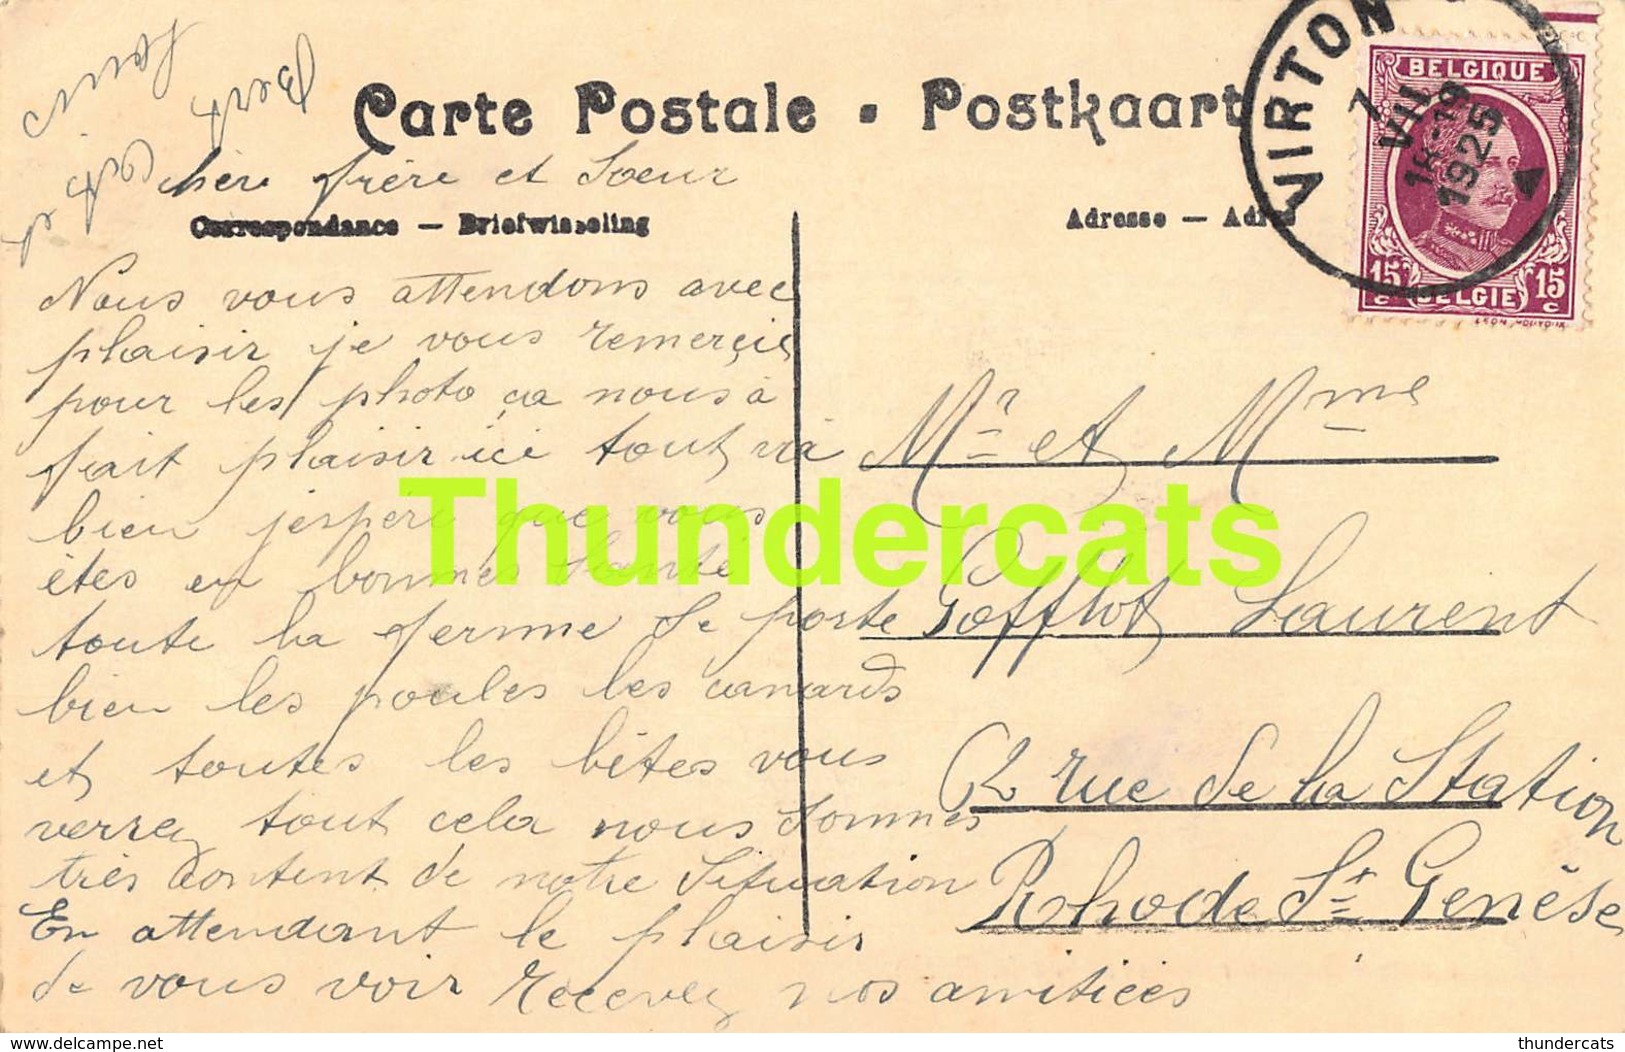 Carte Postale . Postkaart
VIRTON
7
VII
18-19
1925
BELGIQUE
15c BELGIE 15c
Chère frère et Soeur
Correspondance — Briefwisseling
Adresse — Adres
Nous vous attendons avec
plaisir je vous remercie
pour les photo ça nous à
fait plaisir ici tout và
bien j'espere que vous
êtes en bonnes Santé
toute la ferme Se porte
bien les poules les canards
et toutes les bêtes vous
verrez tout cela nous Sommes
très Content de notre Situation
En attendant le plaisir
de vous voir recevez nos amitiées
Louis
Bert
et
Mr et Mme
Gofflot Laurent
2 rue de la Station
Rhode St Genèse
Thundercats
www.delcampe.net
thundercats